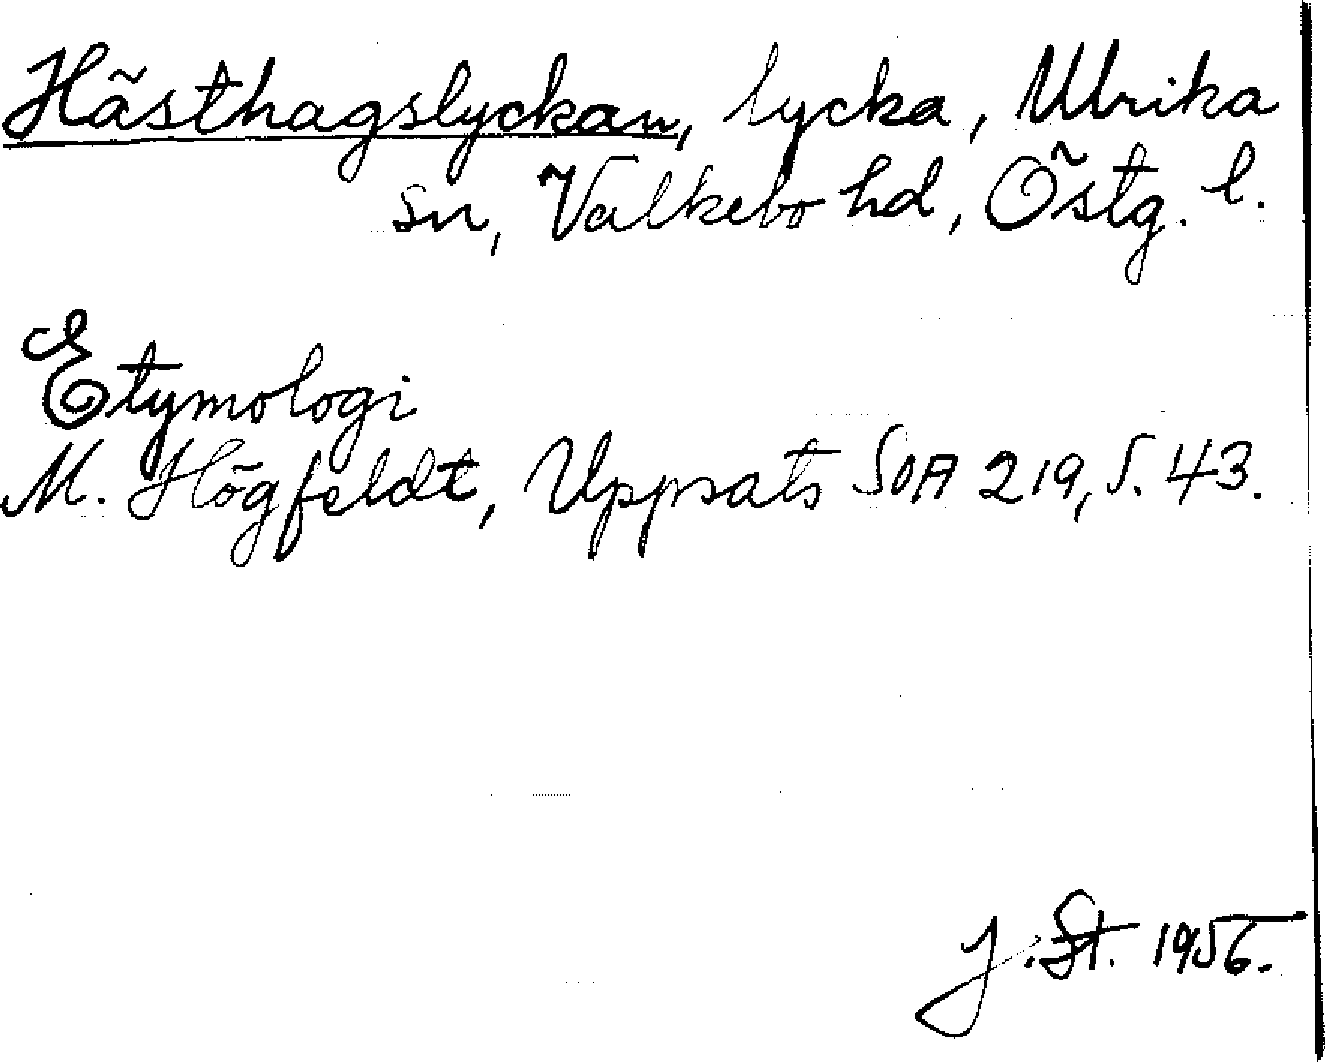 Hästhagslyckan, lycka, Ulrika
sn, Valkebo hd, Östg. l.
Etymologi
M. Högfeldt, Uppsats SOA 219, S. 43.
J. St. 1956.